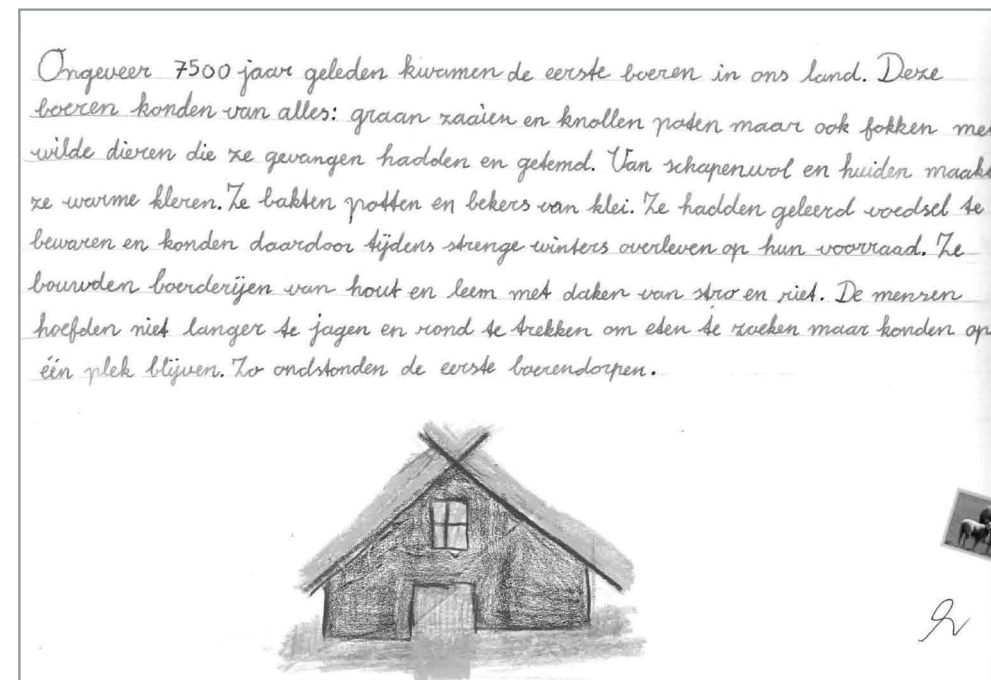 Ongeveer 7500 jaar geleden kwamen de eerste boeren in ons land. Deze
boeren konden van alles: graan zaaien en knollen poten maar ook fokken me
wilde dieren die ze gevangen hadden en getemd. Van schapenwol en huiden maakt
ze warme kleren. Ze bakten potten en bekers van klei. Ze hadden geleerd voedsel te
bewaren en konden daardoor tijdens strenge winters overleven op hun voorraad. Ze
bouwden boerderijen van hout en leem met daken van stro en riet. De mensen
hoefden niet langer te jagen en rond te trekken om eten te zoeken maar konden op
één plek blijven. Zo ondstonden de eerste boerendorpen.